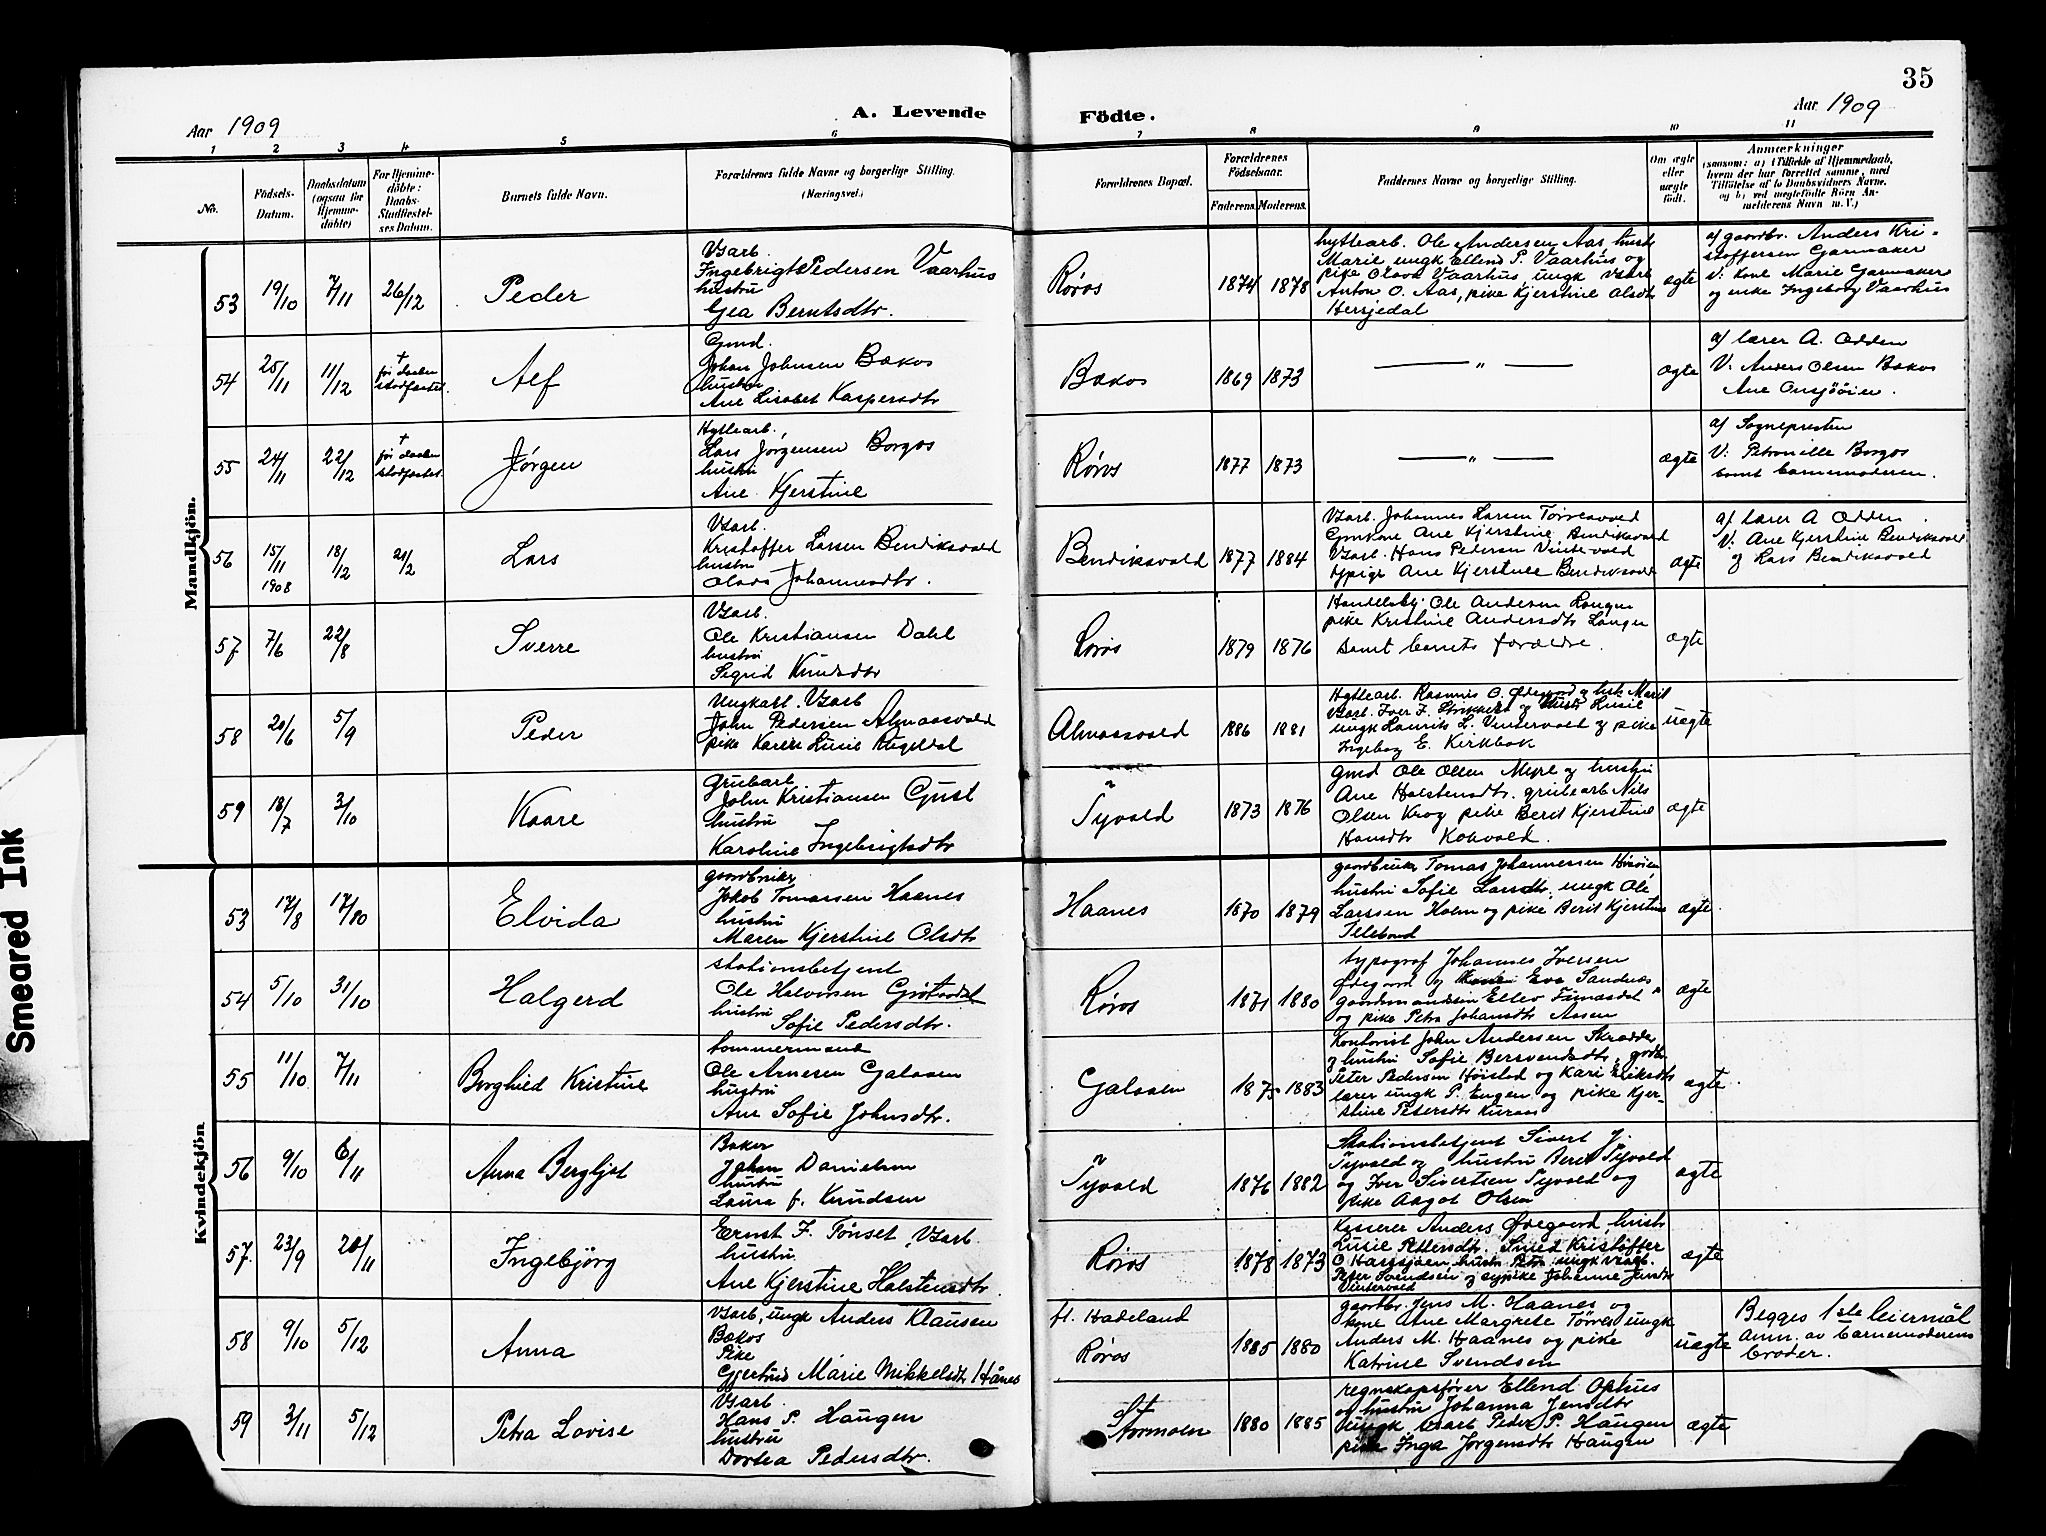 35
Aar 1909
A. Levende
Födte.
Aar 1909
1 2 3 4 5 6 7 8 9 10 11
No.
Födsels-
Datum.
Daabsdatum
(ogsaa for
Hjemme-
döbte)
For Hjemme-
döbte:
Daabs-
Stadfæstel-
ses Datum.
Barnets fulde Navn.
Forældrenes fulde Navne og borgerlige Stilling.
(Næringsvei.)
Forældrenes Bopæl.
Forældrenes
Födselsaar.
Faderens. Moderens.
Faddernes Navne og borgerlige Stilling.
Om ægte
eller
uægte
födt.
Anmærkninger
(saasom: a) i Tilfælde af Hjemmedaab,
hvem der har forrettet samme, med
Tilföielse af to Daabsvidners Navne,
og b) ved uægtefödte Börn An-
melderens Navn m. V.)
Mandkjön.
53 19/10 7/11 26/12 Peder
Vsarb.
Ingebrigt Pedersen Vaarhus
hustru
Gea Berntsdtr.
Røros 1874 1878
hyttearb. Ole Andersen Aas, hustr
Marie ungk Ellend P. Vaarhus og
pike Olava Vaarhus, ungk vsarb
Anton O. Aas, pike Kjerstine Olsdtr
Hersjedal
ægte
af gaardbr. Anders Kri-
stoffersen Garmaker
V: kone Marie Garmaker
og enke Ingeborg Vaarhus
54 25/11 11/12 + før daaben stadfæstet. Alf
Gmd.
Johan Johnsen Bækos
hustru
Ane Lisabet Kaspersdtr
Bækos 1869 1873
— " —
ægte
af lærer A. Odden
V: Anders Olsen Bækos
Ane Onsjöien.
55 24/11 22/12 + før daaben stadfæstet. Jörgen
Hyttearb.,
Lars Jørgensen Borgos
hustru
Ane Kjerstine
Røros 1877 1873
— " —
ægte
af Sognepresten
V: Petronille Borgos
samt barnemoderen.
56 15/11 1908 18/12 21/2 Lars
Vsarb.
Kristoffer Larsen Bendiksvold
hustru
Olava Johannesdtr.
Bendiksvold 1877 1884
Vsarb. Johannes Larsen Törresvold
Gmkone Ane Kjerstine Bendiksvold
Vsarb. Hans Pedersen Vintervold
Ane Kjerstine Bendiksvold
ægte
af lærer A Odden.
V: Ane Kjerstine Bendiksvold
og Lars Bendiksvold
57 7/6 22/8 Sverre
Vsarb.
Ole Kristiansen Dahl
hustru
Sigrid Knudsdtr
Røros 1879 1876
Handelsbj. Ole Andersen Langen
pike Kristine Andersdtr Langen
samt barnets forældre.
ægte
58 20/6 5/9 Peder
Ungkarl. Vsarb
John Pedersen Almaasvold
pike Karen Lusie Engesdal
Almaasvold 1886 1881
Hyttearb. Rasmus O. Ødegaard og hustr Marit
Vsarb. Iver F. og Lusie
ungk Laurits L. Vintervold og pike
Ingeborg E. Kirkbak
uægte
59 18/7 3/10 Kaare
grubearb
John Kristiansen Gust
hustru
Karoline Ingebrigtsdtr
Tyvold 1873 1876
gmd Ole Olsen Myre og hustru
Ane Holstensdtr. grubearb Nils
Olsen Krog pike Berit Kjerstine
Hansdtr Kokvold.
ægte
Kvindekjön
53 17/8 17/10 Elvida
gaardbruker
Jakob Tomassen Haanes
hustru
Maren Kjerstine Olsdtr
Haanes 1870 1879
gaardbruker Tomas Johannessen
hustru Sofie Larsdtr, ungk Ole
Larssen Holm og pike Berit Kjerstine
ægte.
54 5/10 31/10 Halgerd
stationsbetjent
Ole Halvorsen Grötaadal
hustru
Sofie Pedersdtr.
Røros 1871 1880
typograf Johannes Iversen
Ødegaard og Eva Sandnes
Ellev
og pike Petra Johansdtr Aasen
ægte
55 11/10 7/11 Borghild Kristine
tømmermand
Ole Arnesen Galaaen
hustru
Ane Sofie Johnsdtr.
Galaaen 1875 1883
Kontorist John Andersen Skrædder
og hustru Sofie Bersvendsdtr, gmdbr
Peter Pedersen Höistad og Kari Eriksdtr
lærer ungk P. Engen og pike Kjer-
stine Petersdtr Kuraas
ægte.
56 9/10 6/11 Anna Bergljot
Baker
Johan Danielsen
hustru
Laura f. Knudsen
Tyvold 1876 1882
Stationsbetjent Sivert J.
Tyvold og hustru Berit Tyvold
og Iver Sivertsen Tyvold og
pike Aagot Olsen
ægte
57. 23/9 20/11 Ingebjörg
Ernst F. Tønset, Vsarb
hustru
Ane Kjerstine Holstensdtr.
Røros 1878 1873
Kasserer Anders Ødegaard, hustr
Lusie Pettersdtr. Smed Kristoffer
O Harsjøen, hustr ungk vsarb.
Peter Svendsen og sypike Johanne Jensdtr
Vintervold
ægte
58 9/10 5/12 Anna
Vsarb, ungk Anders Klausen
Bækos
Pike
Gjertrud Marie Mikkelsdtr Hånes
fl. Hadeland
Røros 1885 1880
gaardbr. Jens M. Haanes og
kone Ane Margrete Törres ungk
Anders M. Haanes og pike
Katrine Svendsen
uægte
Begges 1ste leiermål
anm. av barnemoderens
broder.
59 3/11 5/12 Petra Lovise
Vsarb
Hans P. Haugen
hustru
Dortea Pedersdtr.
Stormoen 1880 1885
regnskapsfører Ellend Ophus
og hustru Johanna Jensdtr
Ungk vsarb Peder P. Haugen
pike Inga Jørgensdtr Haugen
ægte
Smeared Ink